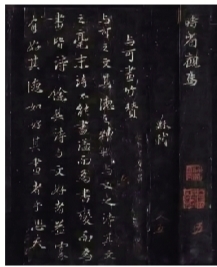 者觀焉
蘇軾
與可畫竹贊
與可之文其德之糟粕與可之詩其文
之毫末詩不能盡溢而為書變而為
畫皆詩之餘其詩與文好者益寡
有好其德如好其畫者乎悲夫